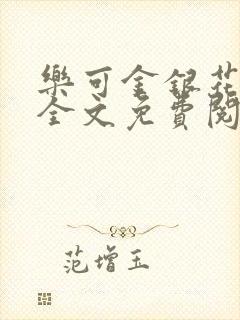 樂可金銀花
全文免費閱
范增玉